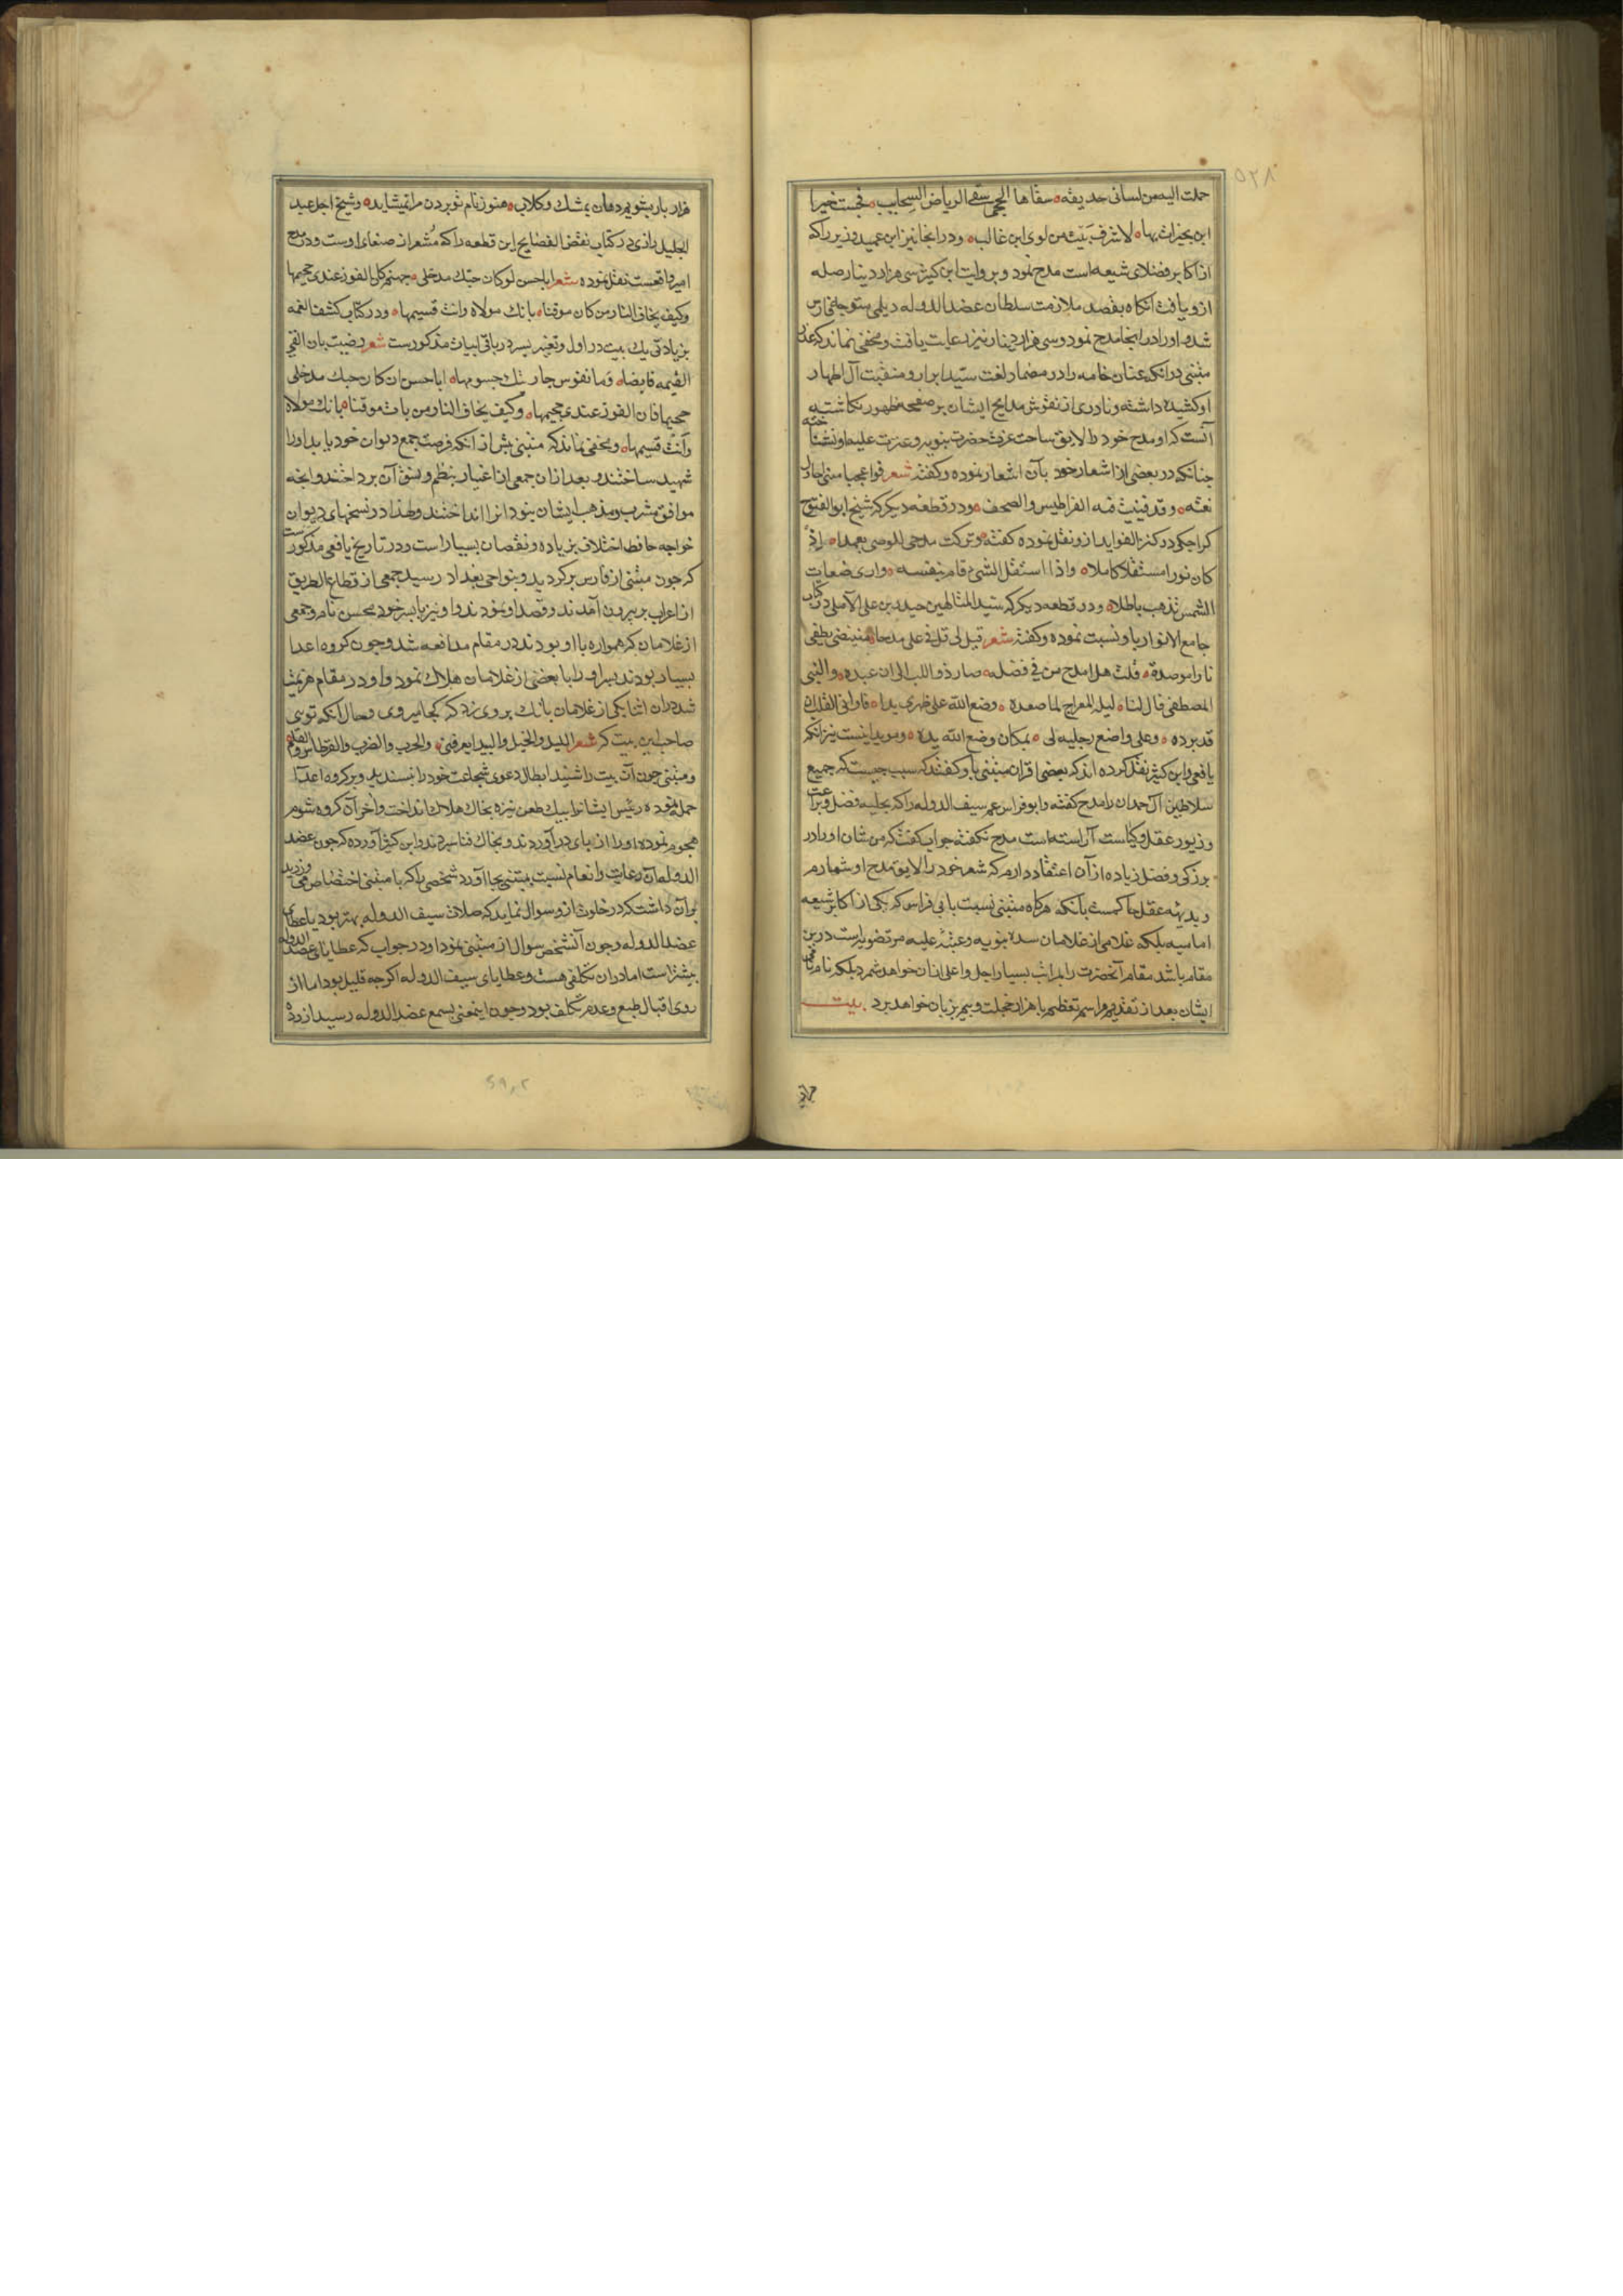 ۵۲۸
حملت الیه من لسانی حدیقه سقاها الحجی سقی الریاض السحایب فحییت خیر
ابن بخیراب بها لاشرف بیت من لوی ابن غالب و در انجا نیز ابن عمید وزیر را که
از اکابر فضلای شیعه است مدح نمود و بروایت ابن کثیر سی هزار دینار صله
ازو یافت انکاه بقصد ملازمت سلطان عضد الدوله دیلمی متوجه فارس
شد و او را در انجا مدح نمود و سی هزار دینار نیز رعایت یافت و مخفی نماند که عذر
متنبی در انکه عنان خامه را در مضمار نعت سید ابرار و منقبت آل اطهار
او کشیده داشته و نادری از نقوش مدایح ایشان بر صفحه ظهور نکاشته
آنست که او مدح خود را لایق ساحت عزت حضرت نبویه و عترت علیه او نشناخته
چنانکه در بعضی از اشعار خود بآن اشعار نموده و کفته شعر فواعجبا منی احاول
نعته و قد فنیت فیه القراطیس و الصحف و در قطعه دیکر که شیخ ابو الفتوح
کراجکی در کنز الفواید ازو نقل نموده کفته و ترکت مدحی للوصی تعمدا اذ
کان نورا مستقلا کاملا و اذا استقل الشیء قام بنفسه و اری صفات
الشمس تذهب باطلا و در قطعه دیکر که سید المتالهین حیدر بن علی الآملی در کتاب
جامع الانوار باو نسبت نموده و کفته شعر قیل لی قل فی علی مدحا ینتضی یطفی
نارا موصدة قلت هل امدح من فی فضله صار ذو اللب الی ان عبده و النبی
المصطفی قال لنا لیلة المعراج لما صعده وضع الله علی ظهری یدا فارانی القلب ان
قد برده و علی واضع رجلیه لی بمکان وضع الله یده و موید اینست نیز انکه
یافعی و ابن کثیر نقل کرده اند که بعضی اقران متنبی باو کفتند که سبب چیست که جمیع
سلاطین آل حمدان را مدح کفته و ابو فراس عم سیف الدوله را که بحلیه فضل و براعت
و زیور عقل و کیاست آراسته است مدح نکفته جواب کفت که من شان او را در
بزرکی و فضل زیاده از آن اعتقاد دارم که شعر خود را لایق مدح او شمارم
و بدیهه عقل حاکمست بآنکه هرکاه متنبی نسبت بابی فراس که یکی از اکابر شیعه
امامیه بلکه غلامی از غلامان سده نبویه و عتبه علیه مرتضویه است درین
مقام باشد مقام آنحضرت را بمراتب بسیار اجل و اعلی ازان خواهد شمرد بلکه نام نامی
ایشان بعد از تقدیم مراسم تعظیم با هزار خجلت و بیم بر زبان خواهد برد بیت
هزار
هزار بار بشویم دهان بمشک و کلاب هنوز نام تو بردن مرا نمیشاید و شیخ اجل عبد
الجلیل رازی در کتاب نقض الفضایح این قطعه را که مشعر از صفای اوست و در مدح
امیر واقعست نقل نموده شعر ابا حسن لو کان حبک مدخلی جهنم کان الفوز عندی جحیمها
و کیف یخاف النار من کان موقنا بانک مولاه و انت قسیمها و در کتاب کشف الغمه
بزیادتی یک بیت در اول و تغییر یسیر در باقی ابیات مذکورست شعر رضیت بان القی
القیمه خایضا دما نفوس حاربتک جسومها ابا حسن ان کان حبک مدخلی
جحیما فان الفوز عندی جحیمها و کیف یخاف النار من بات موقنا بانک مولاه
و انت قسیمها و مخفی نماند که متنبی پیش از انکه فرصت جمع دیوان خود یابد او را
شهید ساختند و بعد ازان جمعی از اغیار بنظم و نسق آن پرداختند و انچه
موافق مشرب و مذهب ایشان نبود انرا انداختند و لهذا در نسخهای دیوان
خواجه حافظ اختلاف بزیاده و نقصان بسیار است و در تاریخ یافعی مذکورست
که چون متنبی از فارس برکردید و بنواحی بغداد رسید جمعی از قطاع الطریق
از اعراب بر بیرون آمدند و قصد او نمودند و او نیز با پسر خود محسن نام و جمعی
از غلامان که همواره با او بودند در مقام مدافعه شد و چون کروه اعدا
بسیار بودند پسر او را با بعضی از غلامان هلاک نمود و او در مقام هزیمت
شد در ان اثنا یکی از غلامان بانک بر وی زد که کجا میروی و حال آنکه تویی
صاحب این بیت که شعر اللیل و الخیل و البیدا تعرفنی و الحرب و الضرب و القرطاس و القلم
و متنبی چون آن بیت را شنید ابطال دعوی شجاعت خود را نپسندید و بر کروه اعدا
حمله نموده رئیس ایشانرا بیک طعن نیزه بخاک هلاک انداخت و آخر آن کروه شوم
هجوم نموده او را از پای در آوردند و بخاک فنا سپردند و ابن کثیر آورده که چون عضد
الدوله آن رعایت و انعام نسبت بمتنبی بجا آورد شخصی را که با متنبی اختصاص می ورزید
بر آن داشت که در خلوت ازو سوال نماید که صلات سیف الدوله بهتر بود یا عطای
عضد الدوله و چون آنشخص سوال از متنبی نمود او در جواب که عطایای عضد الدوله
بیشتر است اما دران تکلفی هست و عطایای سیف الدوله اکرچه قلیل بود اما از
روی اقبال طبع و عدم تکلف بود و چون اینمعنی بسمع عضد الدوله رسید ازرده